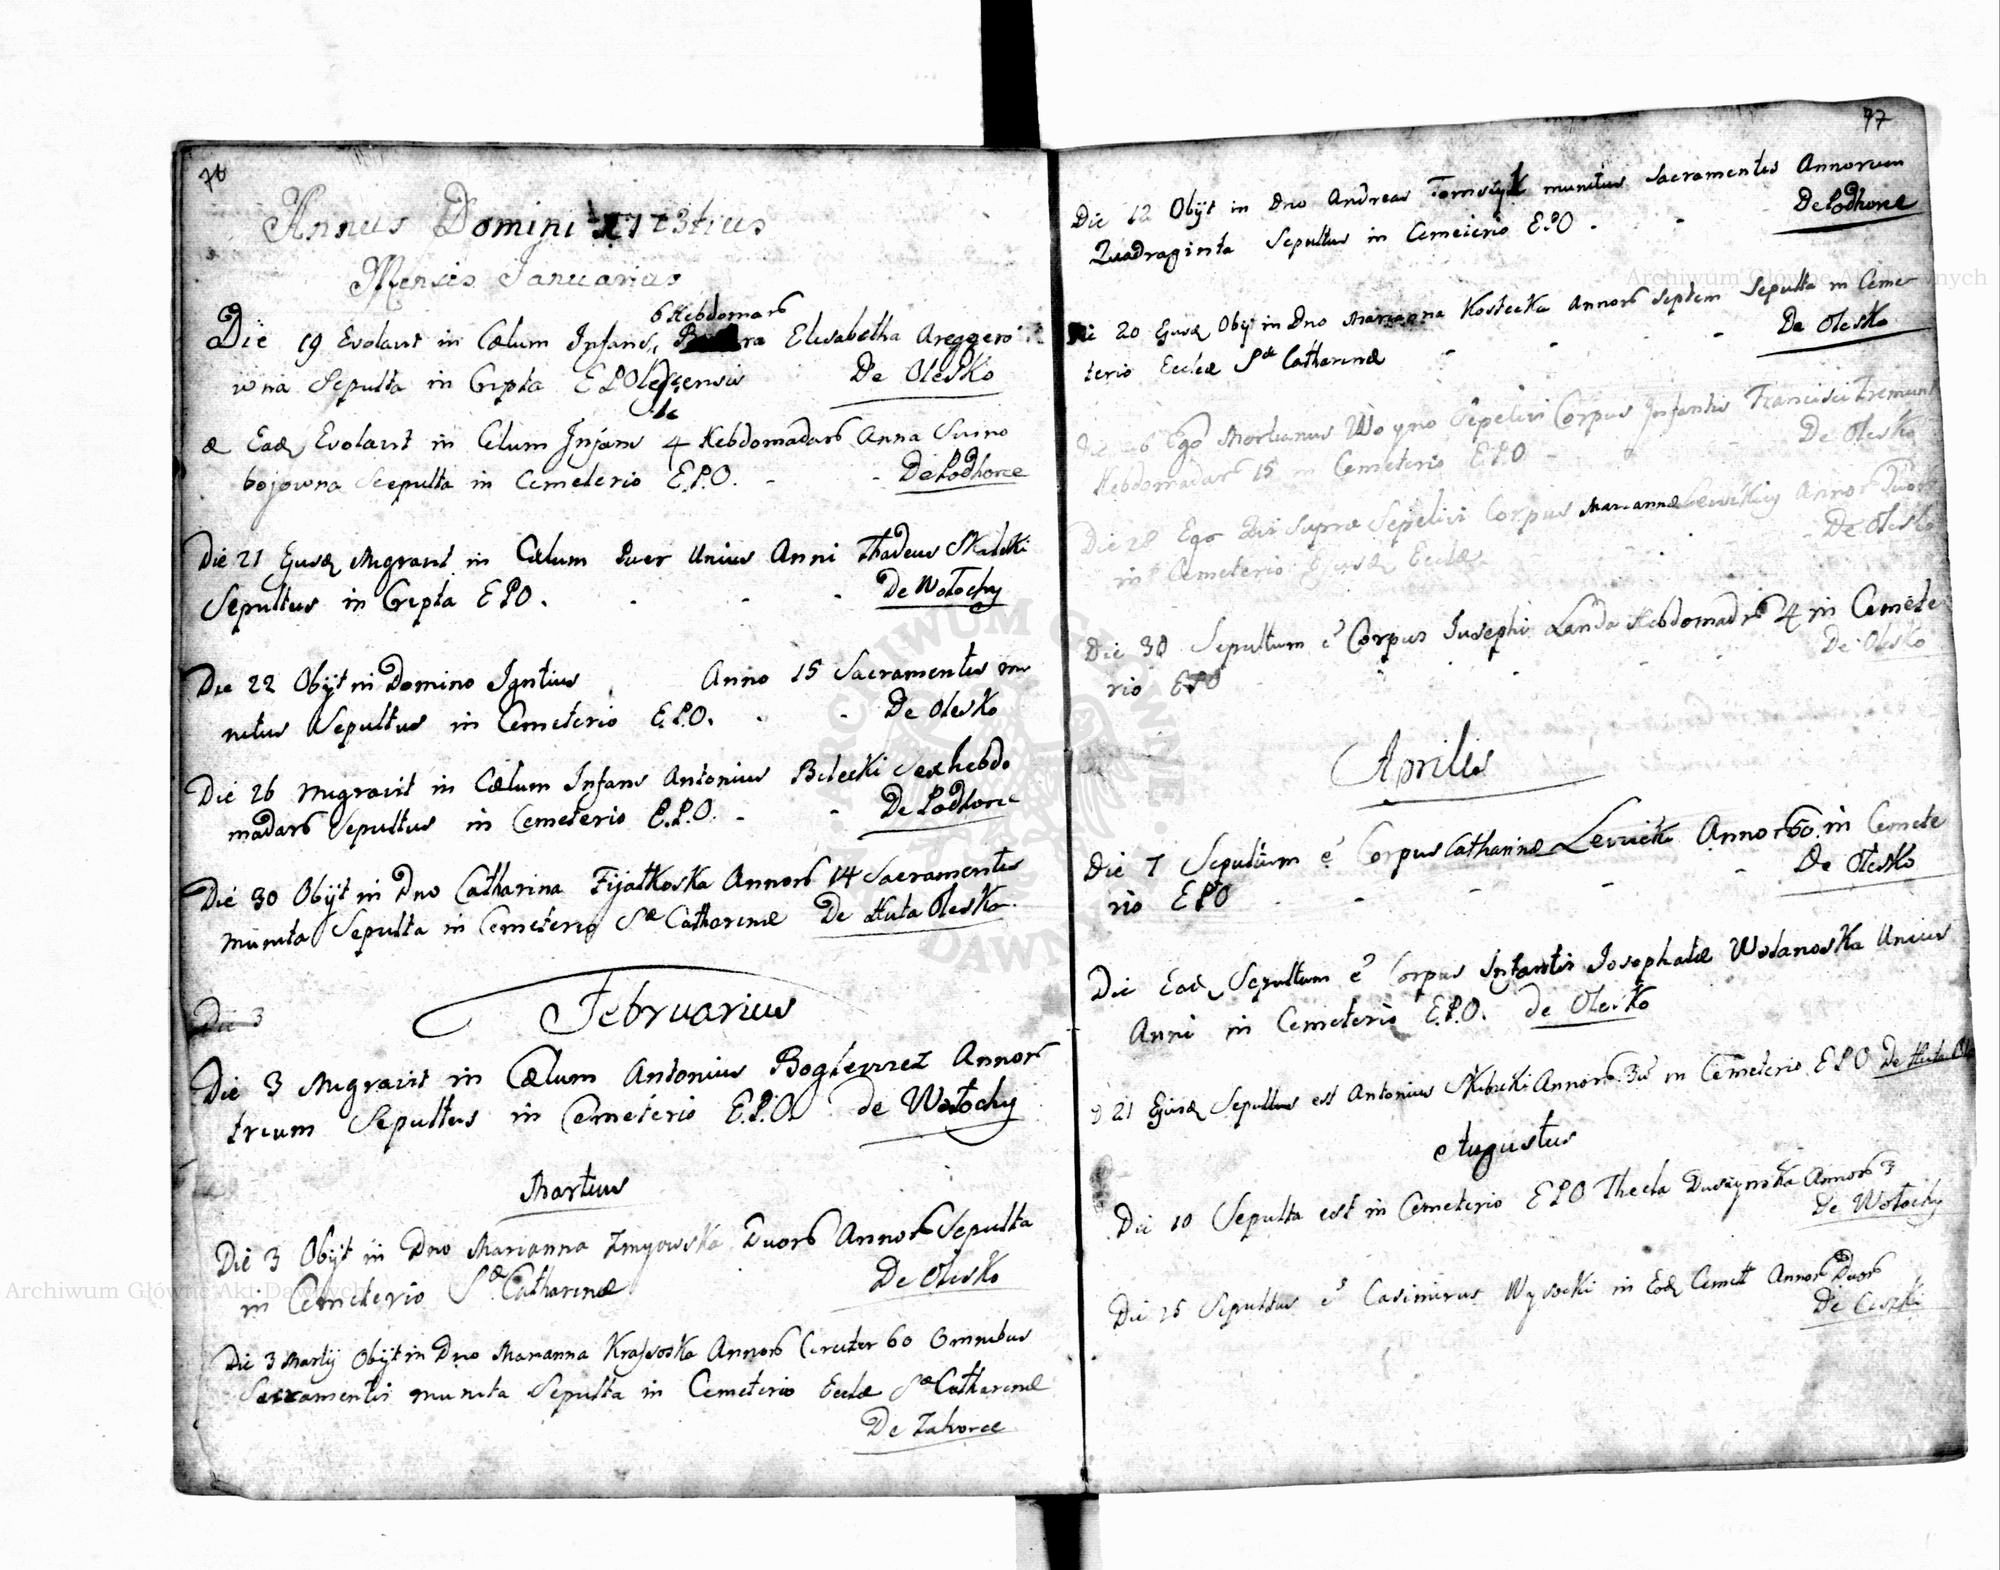 76
Annus Domini 1773tius
Mensis Januarius
6 Hebdomar
Die 19 Evolavit in Cælum Infans, Elisabetha Areggero
wna Sepulta in Cripta E P Olescensis De Olesko
Eadē Evolavit in Celum Infans 4 Hebdomadarū Anna Swino
bojowna Seepulta in Cemeterio E.P.O. - - De Podhorce
Die 21 Ejusdē Migravit in Cælum Puer Unius Anni Thadeus Skalski
Sepultus in Cripta E P O. - - - De Wołochy
Die 22 Obijt in Domino Igntius Anno 15 Sacramentis mu
nitus Sepultus in Cemeterio E.P.O. - - De Olesko
Die 26 Migravit in Cælum Infans Antonius Bilecki Sex hebdo
madarū Sepultus in Cemeterio E.P.O. - - De Podhorce
Die 30 Obijt in Dno Catharina Fijałkoska Annorū 14 Sacramentis
munita Sepulta in Cemeterio Sæ Catharinæ De Huta Olesko.
Februarius
Die 3
Die 3 Migravit in Cælum Antonius Bogiewicz Annorū
trium Sepultus in Cemeterio E.P.O. de Wołochy
Martius
Die 3 Obijt in Dno Marianna Zmyowska Duorū Annorū Sepulta
in Cemeterio Sæ Catharinæ De Olesko
Die 3 Martij Obijt in Dno Marianna Krassoska Annorū Circiter 60 Omnibus
Sacramentis munita Sepulta in Cemeterio Eccłæ Sæ Catharinæ
De Zahorce
77
Die 12 Obijt in Dno Andreas Tomczyk munitus Sacramentis Annorum
Quadraginta Sepultus in Cemeterio E P O. - - De Podhorce
Die 20 Ejusdē Obijt in Dno Marianna Kostecka Annorū Septem Sepulta in Ceme
terio Eccłæ Stæ Catharinæ - - - De Olesko
Ego Martianus Woyno Sepelivi Corpus Infantis Francisci
Hebdomadarū 15 in Cemeterio E.P.O - - De Olesko
Die 28 Ego Qui Supra Sepelivi Corpus Mariannæ Annorū Duorū
in Cemeterio Ejusdē Eccłæ. - - De Olesko
Die 30 Sepultum ē Corpus Josephi Landa Hebdomadrū 4 in Cemete
rio E P O - - - De Olesko
Aprilis
Die 7 Sepultum ē Corpus Catharinæ Lewicki Annorū 60 in Cemete
rio E P O - - - - De Olesko
Die Eadē Sepultum ē Corpus Infantis Josephatæ Wolanoska Unius
Anni in Cemeterio E.P.O. de Olesko
D 21 Ejusdē Sepultus est Antonius Skibicki Annorū 30 in Cemeterio E P O De Huta Ole
Augustus
Die 10 Sepulta est in Cemeterio E P O Thecla Duszynska Annorū 3
De Wołochy
Die 15 Sepultus ē Casimirus Wysocki in Eodē Cemett Annorū Duorū
De Ceszki
Archiwum Główne Akt Dawnych
Archiwum Główne Akt Dawnych
ARCHIWUM GŁÓWNE AKT DAWNYCH